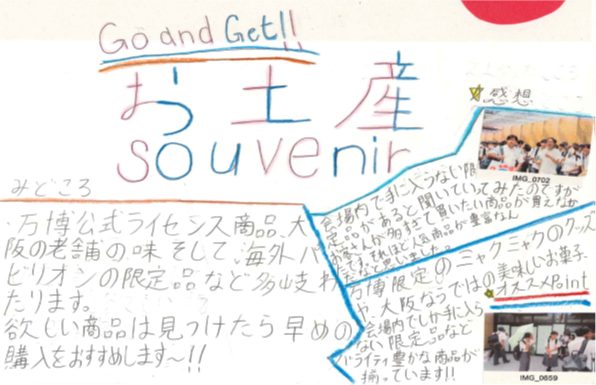 Go and Get!!
お土産
souvenir
みどころ
・万博公式ライセンス商品、大
阪の老舗の味 そして、海外パ
ビリオンの限定品など多岐わ
たります。
欲しい商品は見つけたら早めの
購入をおすすめします〜!!
感想
会場内で手に入らない限
定品があると聞いていってみたのですが
お客さんが多すぎて買いたい商品が買えなか
ったです。それほど人気商品が豊富なん
だなと思いました。
IMG_0702
オススメPoint
万博限定のミャクミャクのグッズ
や、大阪ならではの美味しいお菓子、
会場内でしか手に入ら
ない限定品など
バラエティ豊かな商品が
揃っています!!
IMG_0659